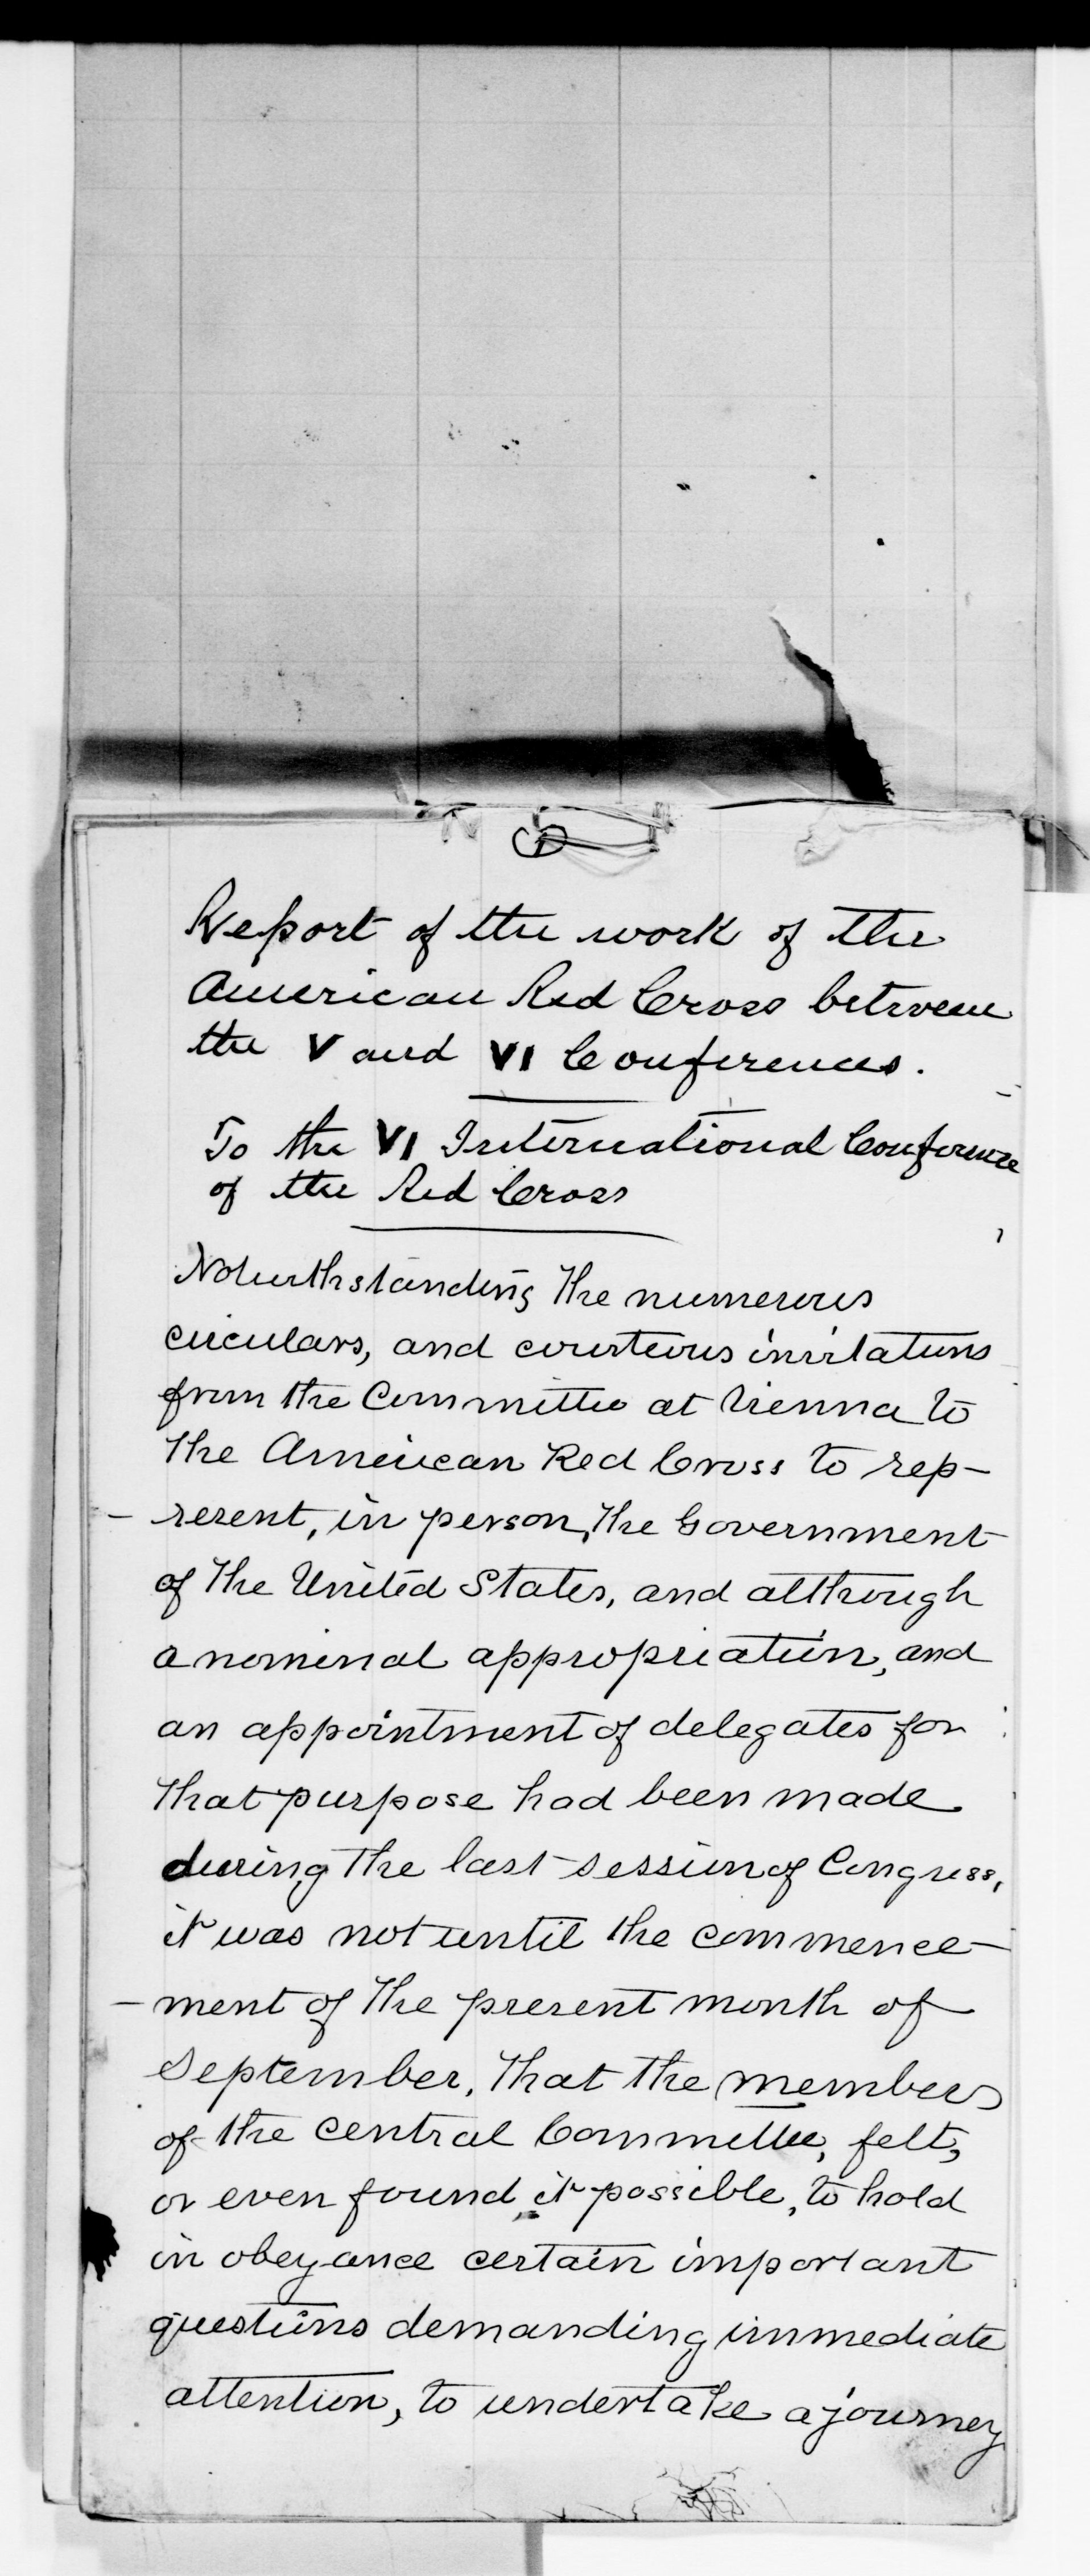 Report of the work of the
American Red Cross between
the V and VI Conferences.
To the VI International Conference
of the Red Cross
Notwithstanding the numerous
circulars, and courteous invitations
from the Committee at Vienna to
the American Red Cross to rep-
- resent, in person, the Government
of the United States, and although
a nominal appropriation, and
an appointment of delegates for
that purpose had been made
during the last session of Congress,
it was not until the commence-
- ment of the present month of
September, that the members
of the central Committee, felt,
or even found it possible, to hold
in obeyance certain important
questions demanding immediate
attention, to undertake a journey